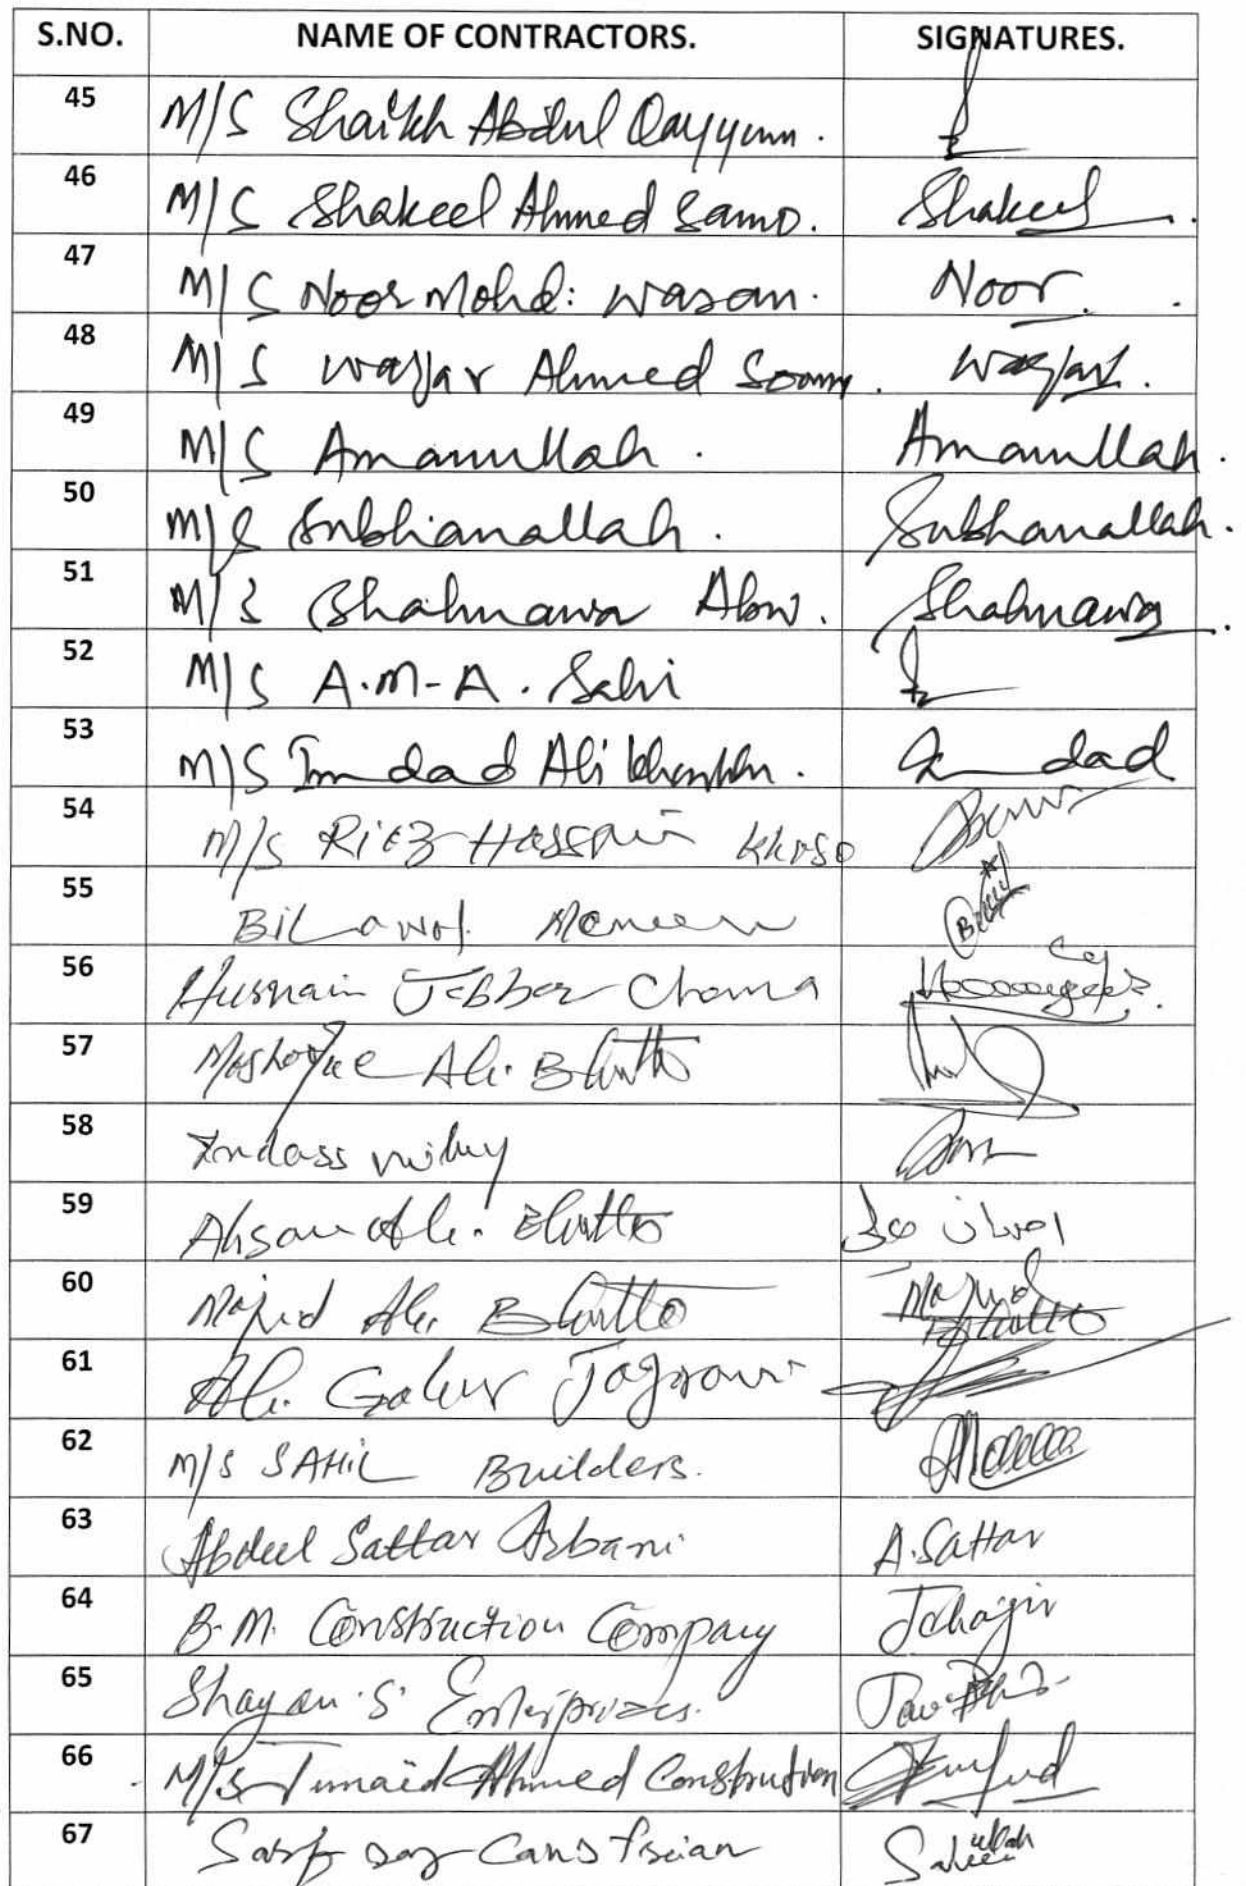 S.NO. NAME OF CONTRACTORS. SIGNATURES.
45 M/S Shaikh Abdul Qayyum.
46 M/S Shakeel Ahmed Samo. Shakeel
47 M/S Noor Mohd: Wasan. Noor.
48 M/S Waqar Ahmed Soomr. Waqar.
49 M/S Amanullah. Amanullah.
50 M/S Subhanallah. Subhanallah.
51 M/S Shahnawa Abro. Shahnawa
52 M/S A.M-A.
53 M/S Imdad Ali Imdad
54 M/S Riaz Hassain Khoso
55 Bilawal Memon
56 Husnain Jabbar Channa
57 Mashoque Ali Bhutto
58
59 Ahsan Ali Bhutto احسان علي
60 Majid Ali Bhutto Majid Bhutto
61 Ali Gohar Jagirani
62 M/S SAHIL Builders.
63 Abdul Sattar Arbani A.Sattar
64 B.M. Construction Company Jahagir
65 Shayan 'S' Enterprizes.
66 M/S Junaid Ahmed Construction
67